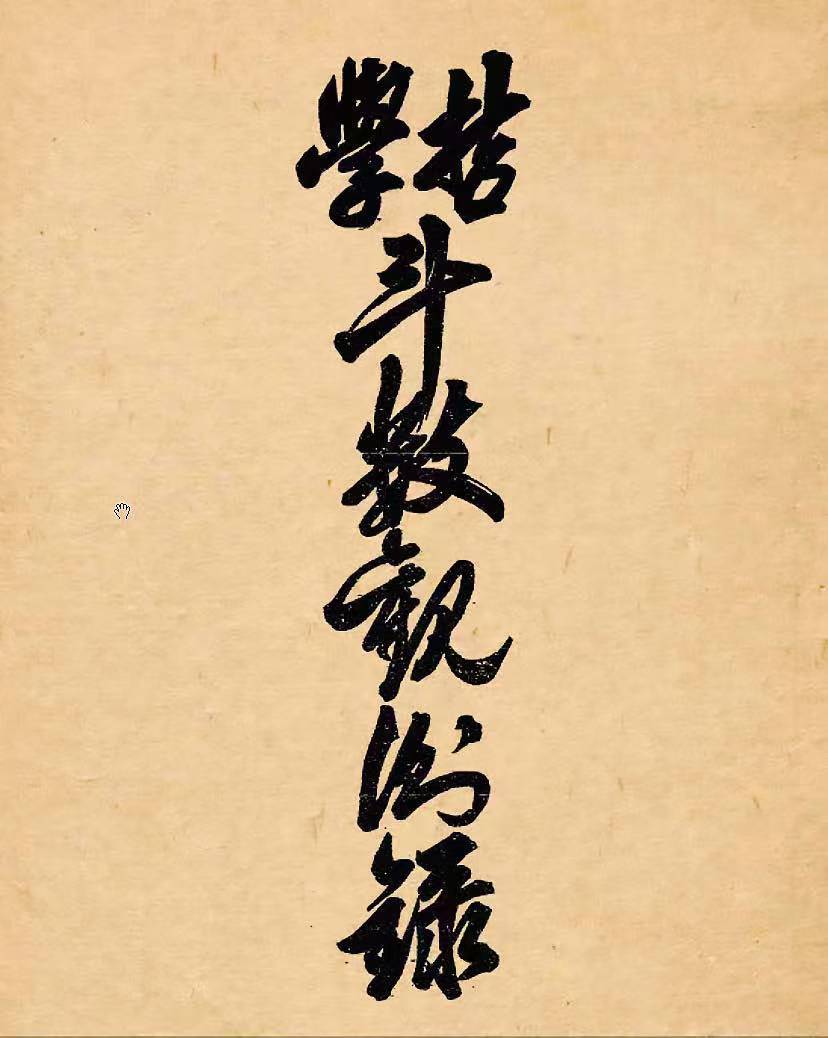 哲學
斗數觀測錄